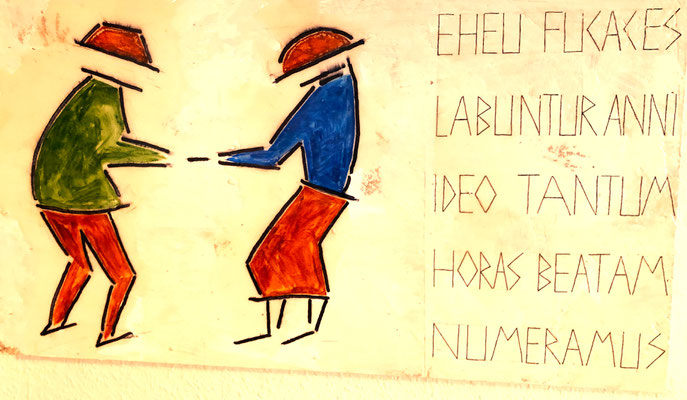 EHEU FUCACES
LABUNTUR ANNI
IDEO TANTUM
HORAS BEATAM
NUMERAMUS